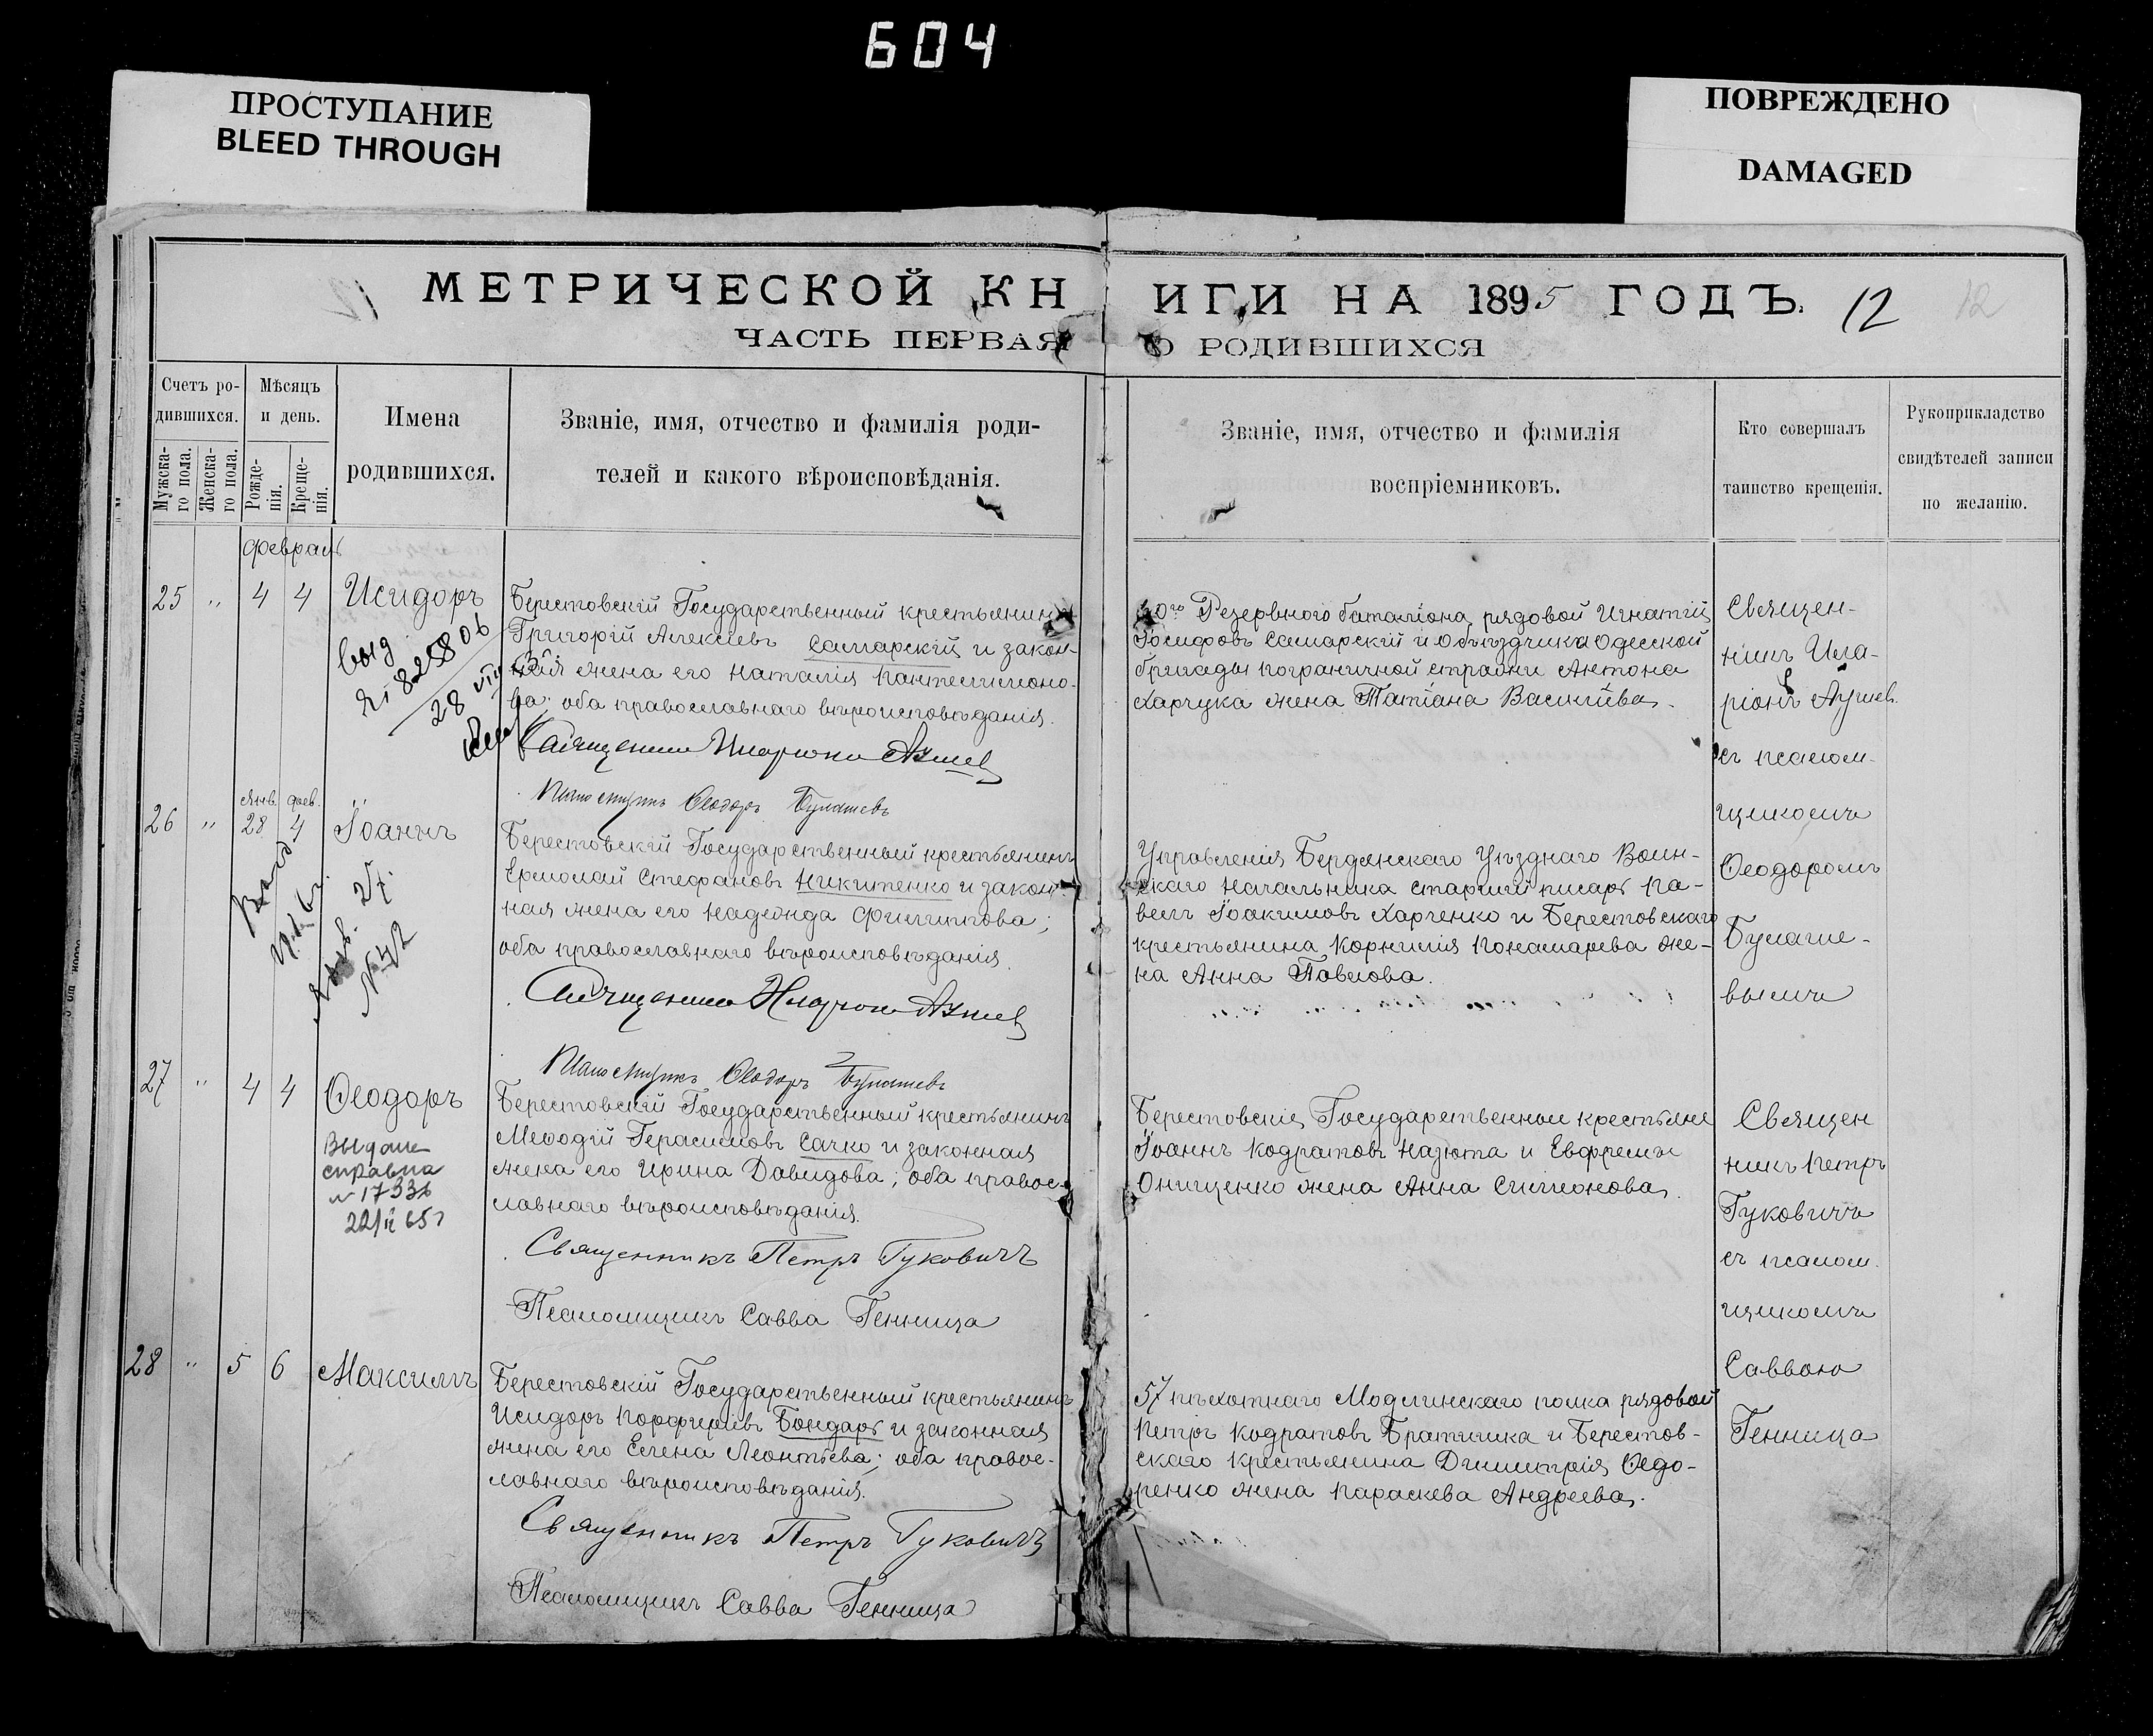 604
ПРОСТУПАНИЕ
BLEED THROUGH
ПОВРЕЖДЕНО
DAMAGED
МЕТРИЧЕСКОЙ КН
ИГИ НА 1895 ГОДЪ.
12
12
ЧАСТЬ ПЕРВАЯ
О РОДИВШИХСЯ
Счетъ ро-
дившихся.
Мужска-
го пола.
Женска-
го пола.
Мѣсяцъ
и день.
Рожде-
нія.
Креще-
нія.
Имена
родившихся.
Званіе, имя, отчество и фамилія роди-
телей и какого вѣроисповѣданія.
Званіе, имя, отчество и фамилія
воспріемниковъ.
Кто совершалъ
таинство крещенія.
Рукоприкладство
свидѣтелей записи
по желанію.
Февраль
25 " 4 4 Исидоръ
выд
28
Берестовскій Государственный крестьянинъ
Григорій Алексіевъ Самарскій и закон-
ная жена его Наталія Пантелимоно-
ва; оба православнаго вѣроисповѣданія.
Священникъ Иларіонъ
Псаломщикъ Ѳеодоръ Булашевъ
Резервнаго баталіона рядовой Игнатій
Іосифовъ Самарскій и Объѣздчика Одесской
бригады пограничной стражи Антона
Харчука жена Татіана Василіева.
Священ-
никъ Ила-
ріонъ
съ псалом-
щикомъ
Ѳеодоромъ
Булаше-
вымъ
янв. фев.
26 " 28 4 Іоаннъ
Берестовскій Государственный крестьянинъ
Ермолай Стефановъ Никитенко и закон-
ная жена его Надежда Филиппова;
оба православнаго вѣроисповѣданія.
Священникъ Иларіонъ
Псаломщикъ Ѳеодоръ Булашевъ
Управленія Бердянскаго Уѣзднаго Воин-
скаго Начальника старшій писарь Па-
велъ Іоакимовъ Харченко и Берестовскаго
крестьянина Корнилія Понамарева же-
на Анна Павлова.
27 " 4 4 Ѳеодоръ
Выдана
справка
22/II 65 г
Берестовскій Государственный крестьянинъ
Меѳодій Герасимовъ Сачко и законная
жена его Ирина Давидова; оба правос-
лавнаго вѣроисповѣданія.
Священникъ Петръ Гуковичъ
Псаломщикъ Савва Генница
Берестовскіе Государственные крестьяне
Іоаннъ Кодратовъ Назюта и Евфрема
Онищенко жена Анна Симеонова.
Священ
никъ Петръ
Гуковичъ
съ псалом.
щикомъ
Саввою
Генница
28 " 5 6 Максимъ
Берестовскій Государственный крестьянинъ
Исидоръ Порфиріевъ Бондарь и законная
жена его Елена Леонтьева; оба правос-
лавнаго вѣроисповѣданія.
Священникъ Петръ Гуковичъ
Псаломщикъ Савва Генница
57 пѣхотнаго Модлинскаго полка рядовой
Петръ Кодратовъ Братишка и Берестов-
скаго крестьянина Димитрія Ѳедо-
ренко жена Параскева Андреева.